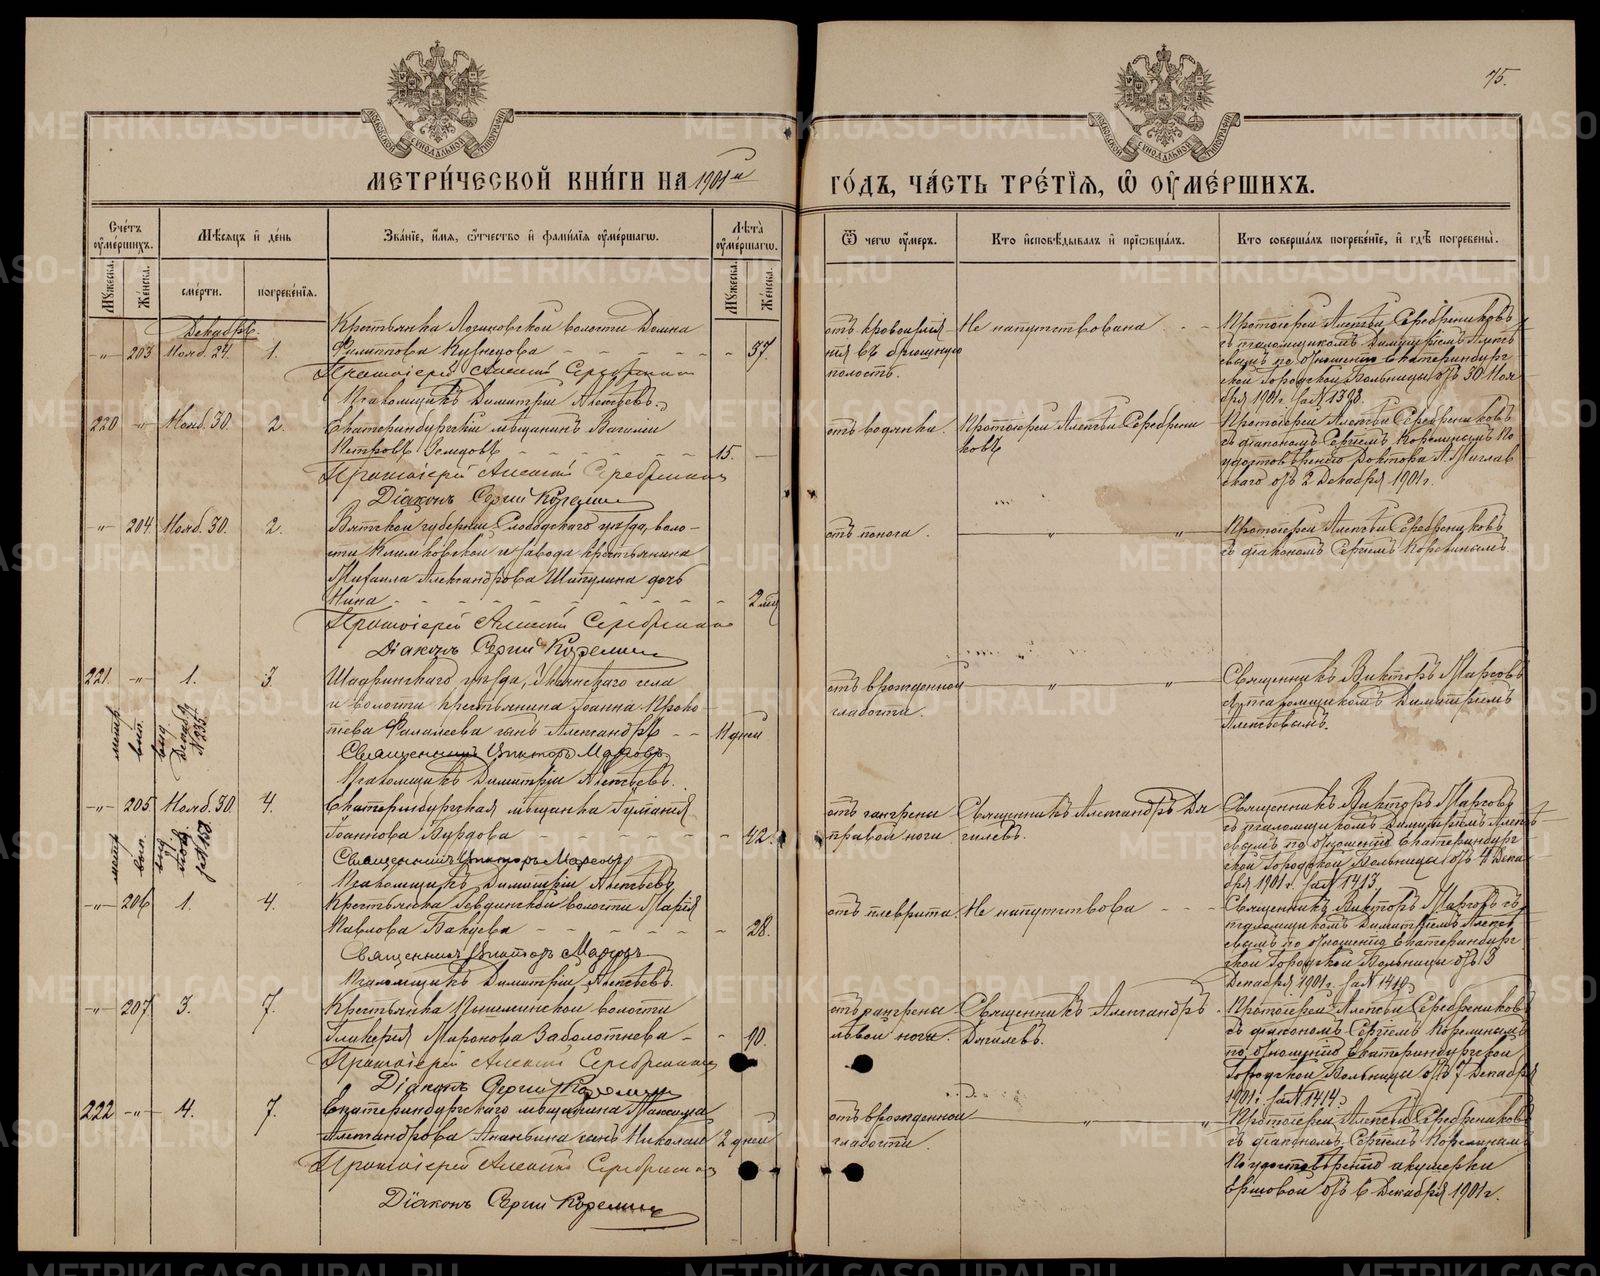 75.
МЕТРИ́ЧЕСКОЙ КНИ́ГИ НА 1901й
ГО́ДЪ, ЧА́СТЬ ТРЕ́ТІЯ, Ѡ ОУМЕ́РШИХЪ.
Сче́тъ оуме́ршихъ.
Мꙋжеска.
Же́нска.
Мѣ́сяцъ и де́нь
сме́рти.
погребе́нія.
Зва́ніе, и́мя, о́тчество и фами́лія оуме́ршагѡ.
Лѣ́та оуме́ршагѡ.
Мꙋжеска.
Же́нска.
Ѿ чегѡ оу́меръ.
Кто исповѣ́дывалъ и пріѡбща́лъ.
Кто соверша́лъ погребе́ніе, и гдѣ погребены̀.
Декабрь.
-"- 203 Нояб. 29. 1.
Крестьянка Логиновской волости Домна
Филиппова Кузнецова - 37.
Протоіерей Алексій Серебренниковъ
Псаломщикъ Димитрій Алексѣевъ.
отъ кровоизлія-
нія въ брюшную
полость.
Не напутствована
Протоіерей Алексѣй Серебрениковъ
съ псаломщикомъ Димитріемъ Алексѣ
евымъ по отношенію Екатеринбург
ской Городской Больницы отъ 30 Ноя
бря 1901 г. за № 1398.
220 -"- Нояб. 30. 2.
Екатеринбургскій мѣщанинъ Василій
Петровъ 15.
Протоіерей Алексій Серебренниковъ
Діаконъ Сергій Корелинъ
отъ водянки.
Протоіерей Алексѣй Серебрени
ковъ
Протоіерей Алексѣй Серебрениковъ
съ діакономъ Сергіемъ Корелинымъ по
удостовѣренію Доктора А. Мислав
скаго отъ 2 Декабря 1901 г.
-"- 204 Нояб. 30. 2.
Вятской губерніи Слободскаго уѣзда, воло-
сти Климковской и завода крестьянина
Михаила Александрова Шипулина дочь
Нина - 2 мѣс
Протоіерей Алексій Серебренниковъ
Діаконъ Сергій Корелинъ
отъ поноса.
-"- -"-
Протоіерей Алексѣй Серебрениковъ
съ діакономъ Сергіемъ Корелинымъ
221. -"- 1. 3.
метр. вып. вид. Декабря № 235
Шадринскаго уѣзда, села
и волости крестьянина Іоанна Проко-
піева сынъ Александръ - 11 дней
Священникъ Викторъ Марсовъ
Псаломщикъ Димитрій Алексѣевъ.
отъ врожденной
слабости.
-"- -"-
Священникъ Викторъ Марсовъ
съ псаломщикомъ Димитріемъ
Алексѣевымъ.
-"- 205 Нояб. 30. 4.
метр. вып.
Екатеринбургская мѣщанка
Іоаннова Бурдова - 42.
Священникъ Викторъ Марсовъ
Псаломщикъ Димитрій Алексѣевъ
отъ гангрены
правой ноги
Священникъ Александръ Дя
гилевъ.
Священникъ Викторъ Марсовъ
съ псаломщикомъ Димитріемъ Алексѣ
евымъ по отношенію Екатеринбург
ской Городской Больницы отъ 4 Дека
бря 1901 г. за № 1413
-"- 206 1. 4.
Крестьянка Ревдинской волости Марія
Павлова - 28.
Священникъ Викторъ Марсовъ
Псаломщикъ Димитрій Алексѣевъ.
отъ плеврита.
Не напутствова
Священникъ Викторъ Марсовъ съ
псаломщикомъ Димитріемъ Алексѣ
евымъ по отношенію Екатеринбург
ской Городской Больницы отъ 3
Декабря 1901 г. за № 1410
-"- 207 3. 7.
Крестьянка Пышминской волости
Гликерія Миронова Заболотнева - 70.
Протоіерей Алексій Серебренниковъ
Діаконъ Сергій Корелинъ
отъ гангрены
лѣвой ноги.
Священникъ Александръ
Дягилевъ.
Протоіерей Алексѣй Серебрениковъ
съ діакономъ Сергіемъ Корелинымъ
по отношенію Екатеринбургской
Городской Больницы отъ 7 Декабря
1901 г. за № 1414.
222 -"- 4. 7.
Екатеринбургскаго мѣщанина Максима
Александрова Ананьина сынъ Николай 2 дней
Протоіерей Алексій Серебренниковъ
Діаконъ Сергій Корелинъ
отъ врожденной
слабости.
-"- -"-
Протоіерей Алексѣй Серебрениковъ
съ діакономъ Сергіемъ Корелинымъ
По удостовѣренію акушерки
Ершовой отъ 6 Декабря 1901 г.
METRIKI.GASO-URAL.RU